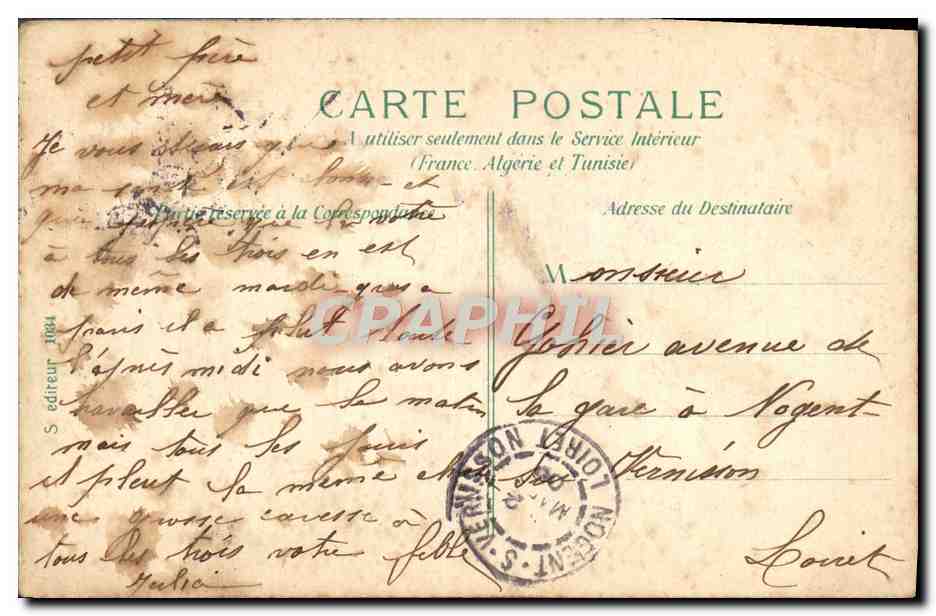 petit frère
et mère
CARTE POSTALE
A utiliser seulement dans le Service Intérieur
(France, Algérie et Tunisie)
Partie réservée à la Correspondance
Adresse du Destinataire
Je vous
ma est et
que que la votre
à tous les trois en est
de même mardi-gras a
paris il a pleut toute
l'après midi nous avons
travailler que le matin
mais tous les jours
il pleut la même
une grosse caresse à
tous les trois votre fille
Julia
Monsieur
Gohier avenue de
la gare à Nogent-
sur Vernisson
Loiret
S editeur 1034
NOGENT-S-VERNISSON LOIRET
CPAPHIL